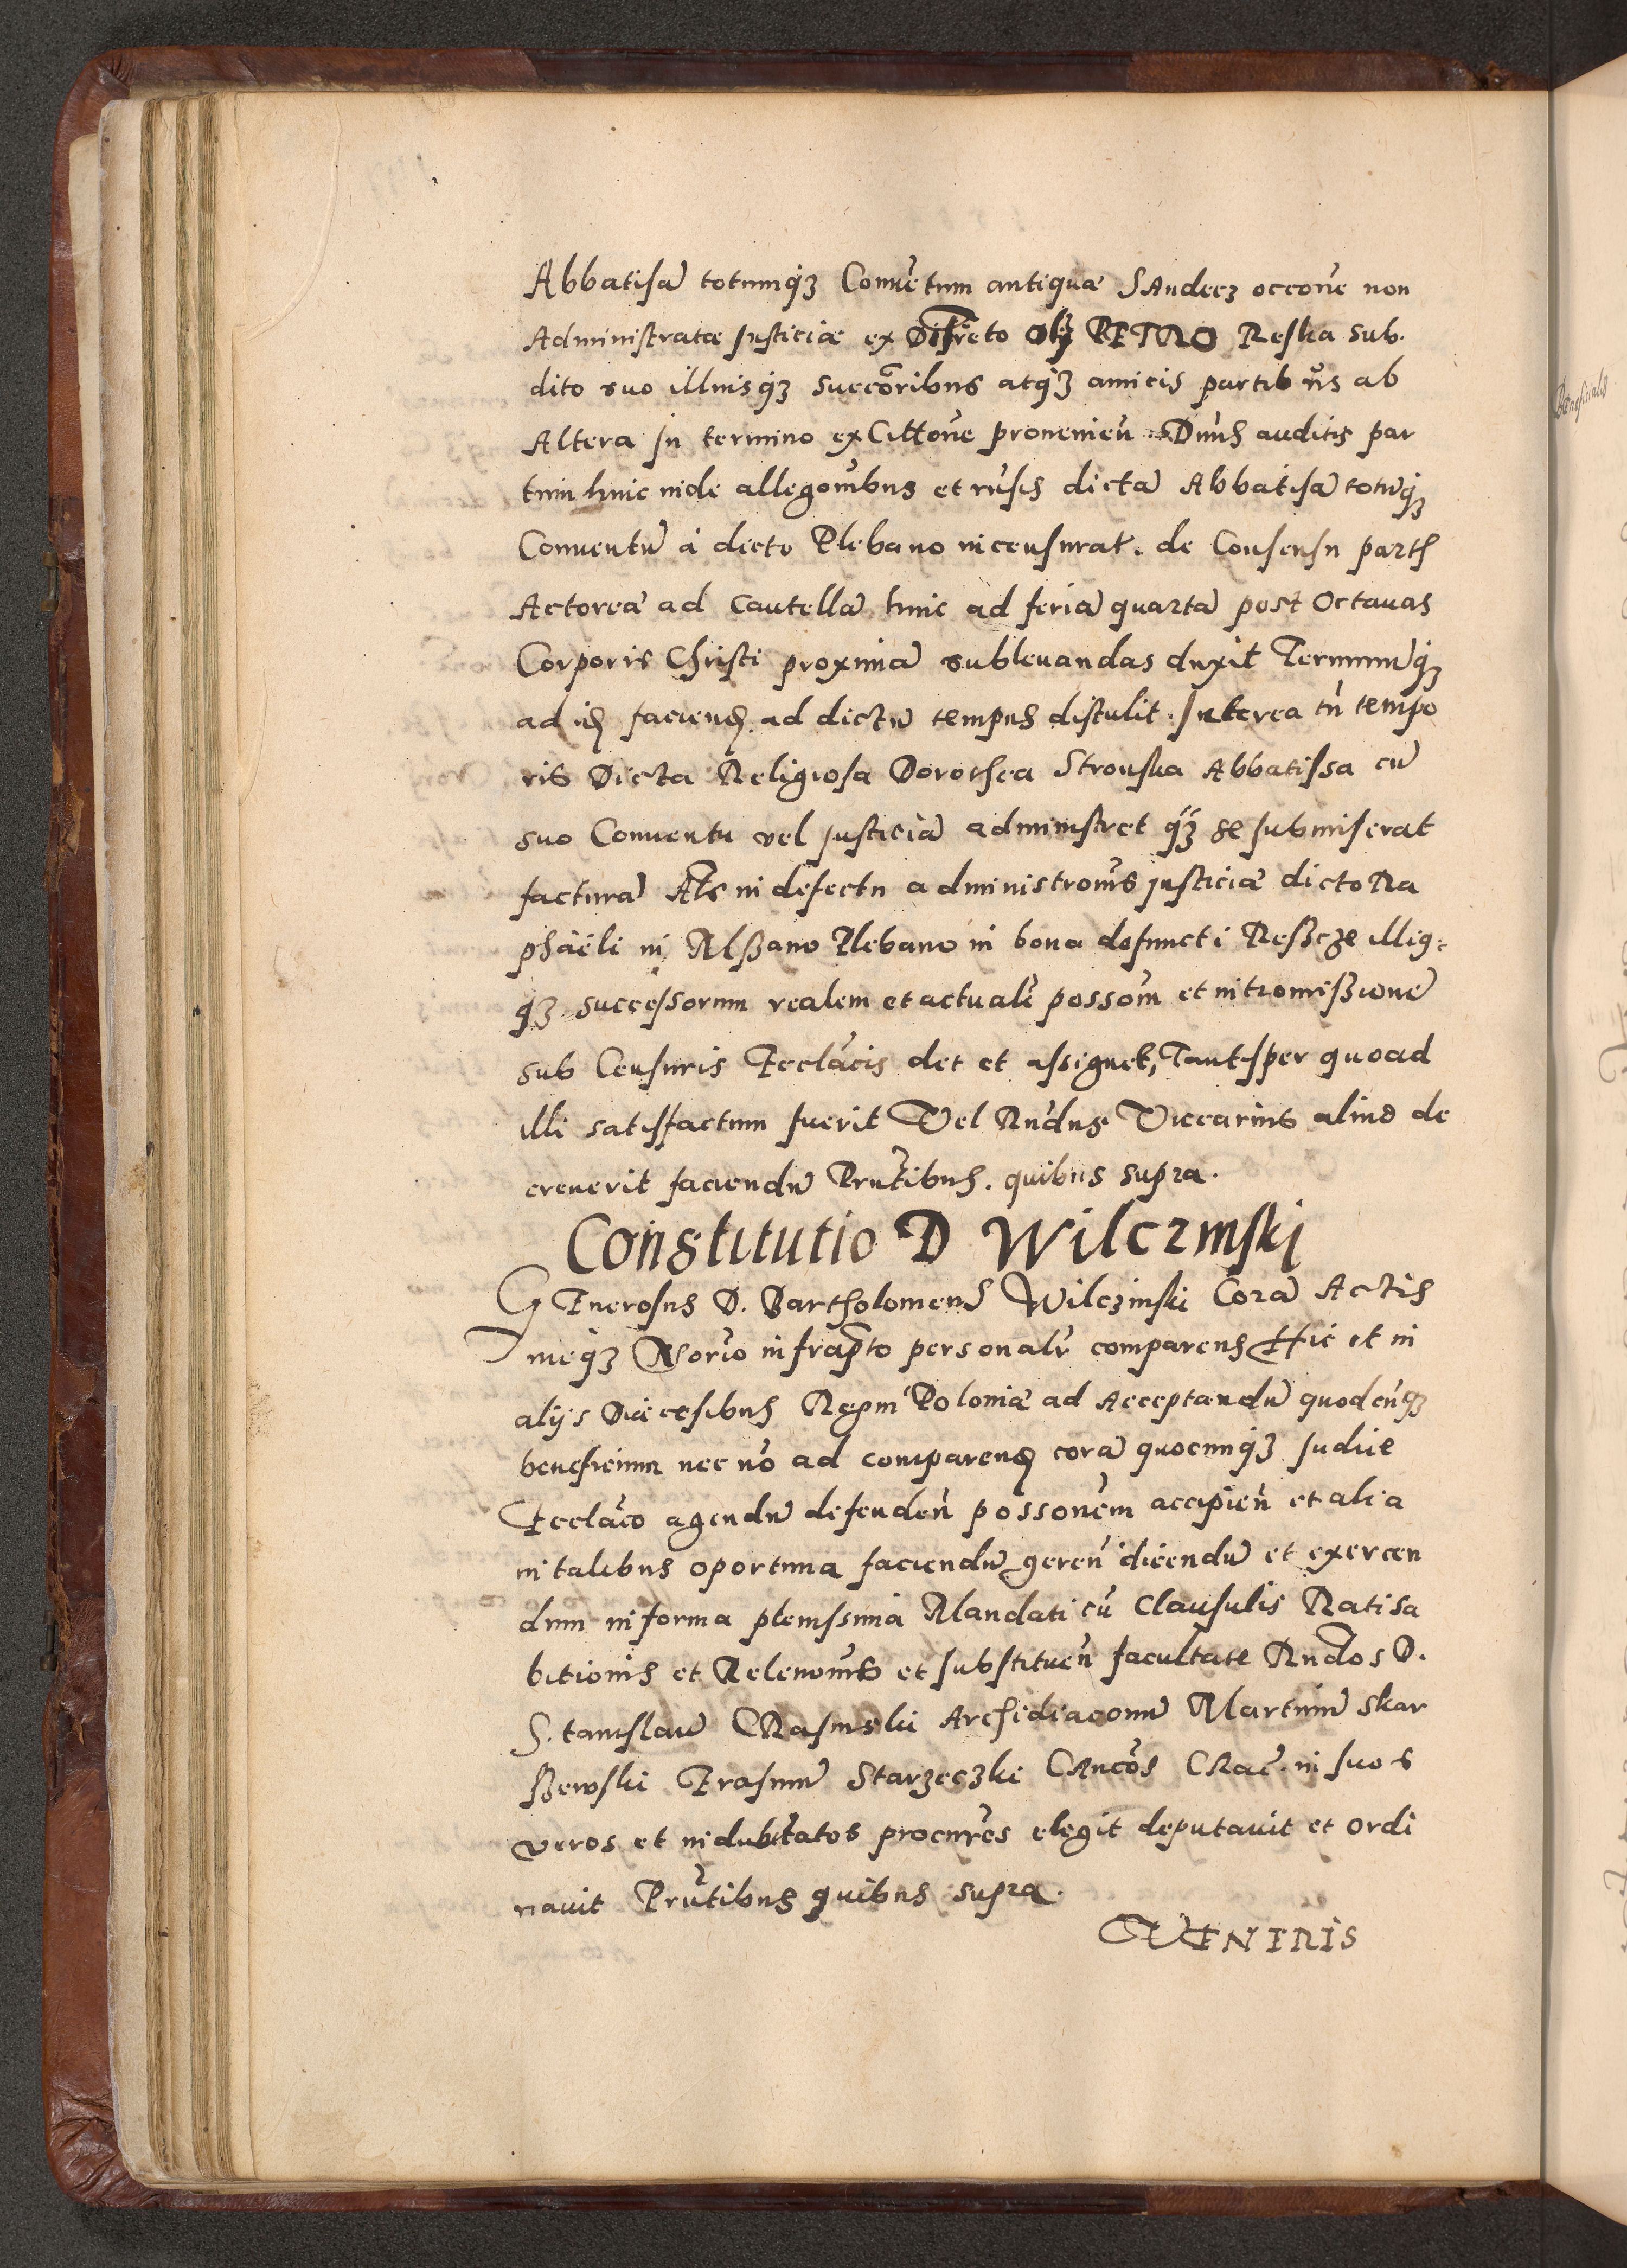 Abbatisā totumq́ꝫ Conuētum antiquæ SAndecz occōne non
Administratæ justiciæ ex Discreto olį PETRO Reska sub.
dito suo illiusq́ꝫ succōribus atq́ꝫ amicis partibus ab
Altera in termino ex Cittōne proueniēn Dnūs auditis par
tium hinc inde allegōnibus et rūsis dictā Abbatisā totūq́ꝫ
Conuentū à dicto Plebano incensurat. de Consensu partis
Actoreæ ad cautellā hinc ad feriā quartā post Octauas
Corporis Christi proximā subleuandas duxit Terminūq́ꝫ
ad id faciend. ad dictū tempus distulit. Interea tn̄ tempo
ris Dicta Religiosa Dorothea Stronska Abbatissa cū
suo Conuentu vel justiciā administret q́ꝫ se submiserat
facturā Als in defectu administrōnis justiciæ dicto Ra
phaëli in Mszano Plebano in bona defuncti Reszcze illig=
qꝫ successorum realem et actualē possōm et intromiszionē
sub Censuris Ecclācis det et assignet, Tantisper quoad
illi satisfactum fuerit Vel Rn̄dus Viccarius aliud de
creuerit faciendū Prn̄tibus. quibus supra.
Constitutio D Wilczinski
GEnerosus D. Bartholomeus Wilczinski Corā Actis
meq́ꝫ Nōrio infrapto personalr̄ comparens Hic et in
alijs Diæcesibus Regni Poloniæ ad Acceptandū quodcūqꝫ
beneficium nec nō ad comparend corā quocunq́ꝫ Judice
Ecclāco agendū defendēn possonēm accipiēn et alia
in talibus oportuna faciendū gerēn dicendū et exercen
dum in forma plenissima Mandati cū Clausulis Ratisa
bitionis et Releuōnis et substituēn facultate Rn̄dos D.
Stanislaū CRasinski Archidiaconū Martinū Skar
szewski Erasmū Starzeczki CAncōs CRac. in suos
veros et indubitatos procurēs elegit deputauit et ordi
nauit Prn̄tibus quibus supra.
VENERIS
Beneficialis